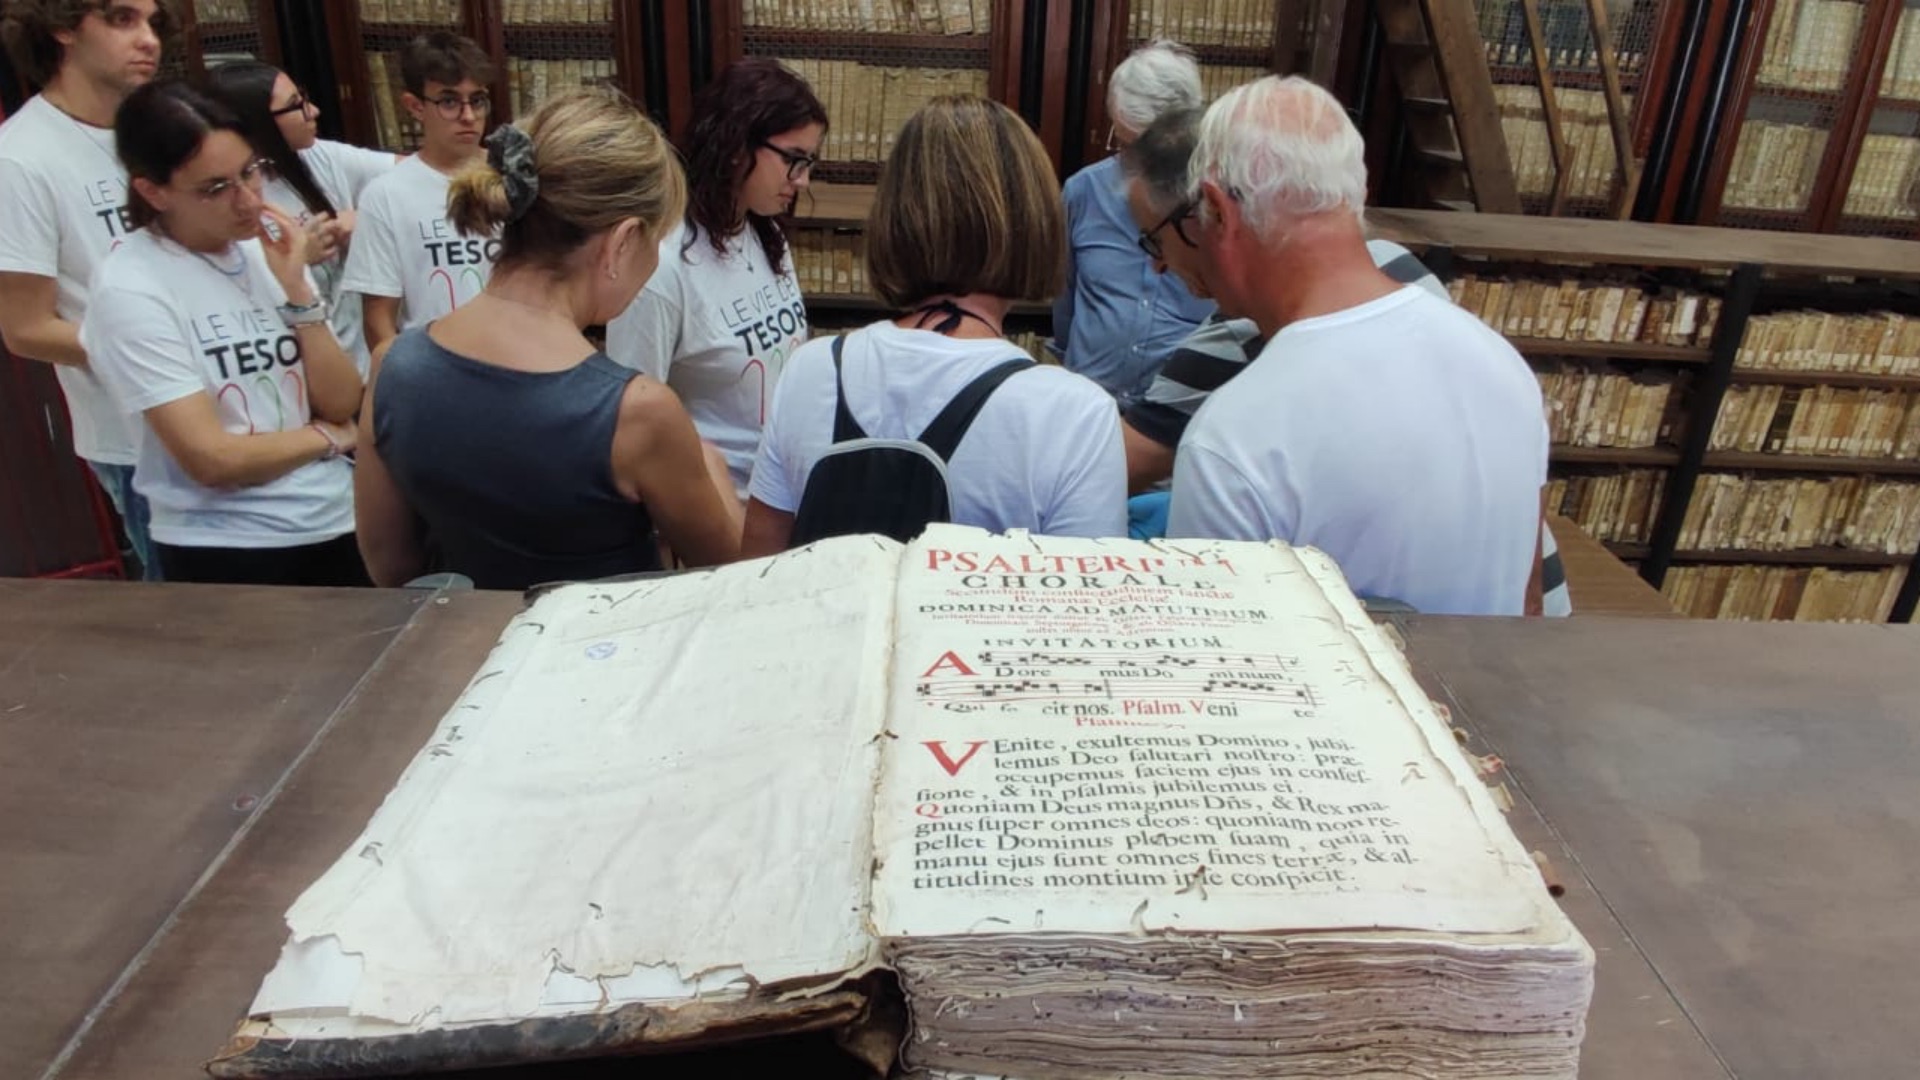 LE V
TE
LE VIE
TESO
LE
TESO
LE VIE DE
TESOR
PSALTERI
CHORALE
Secundum consuetudinem sanctæ
Romanæ Ecclesiæ
DOMINICA AD MATUTINUM.
INVITATORIUM.
A Dore mus Do minum,
* Qui fe cit nos. Pſalm. Veni te
VEnite, exultemus Domino, jubi-
lemus Deo ſalutari noſtro: præ-
occupemus faciem ejus in confeſ-
ſione, & in pſalmis jubilemus ei.
Quoniam Deus magnus Dñs, & Rex ma-
gnus ſuper omnes deos: quoniam non re-
pellet Dominus plebem ſuam, quia in
manu ejus ſunt omnes fines terræ, & al-
titudines montium ipſe conſpicit.